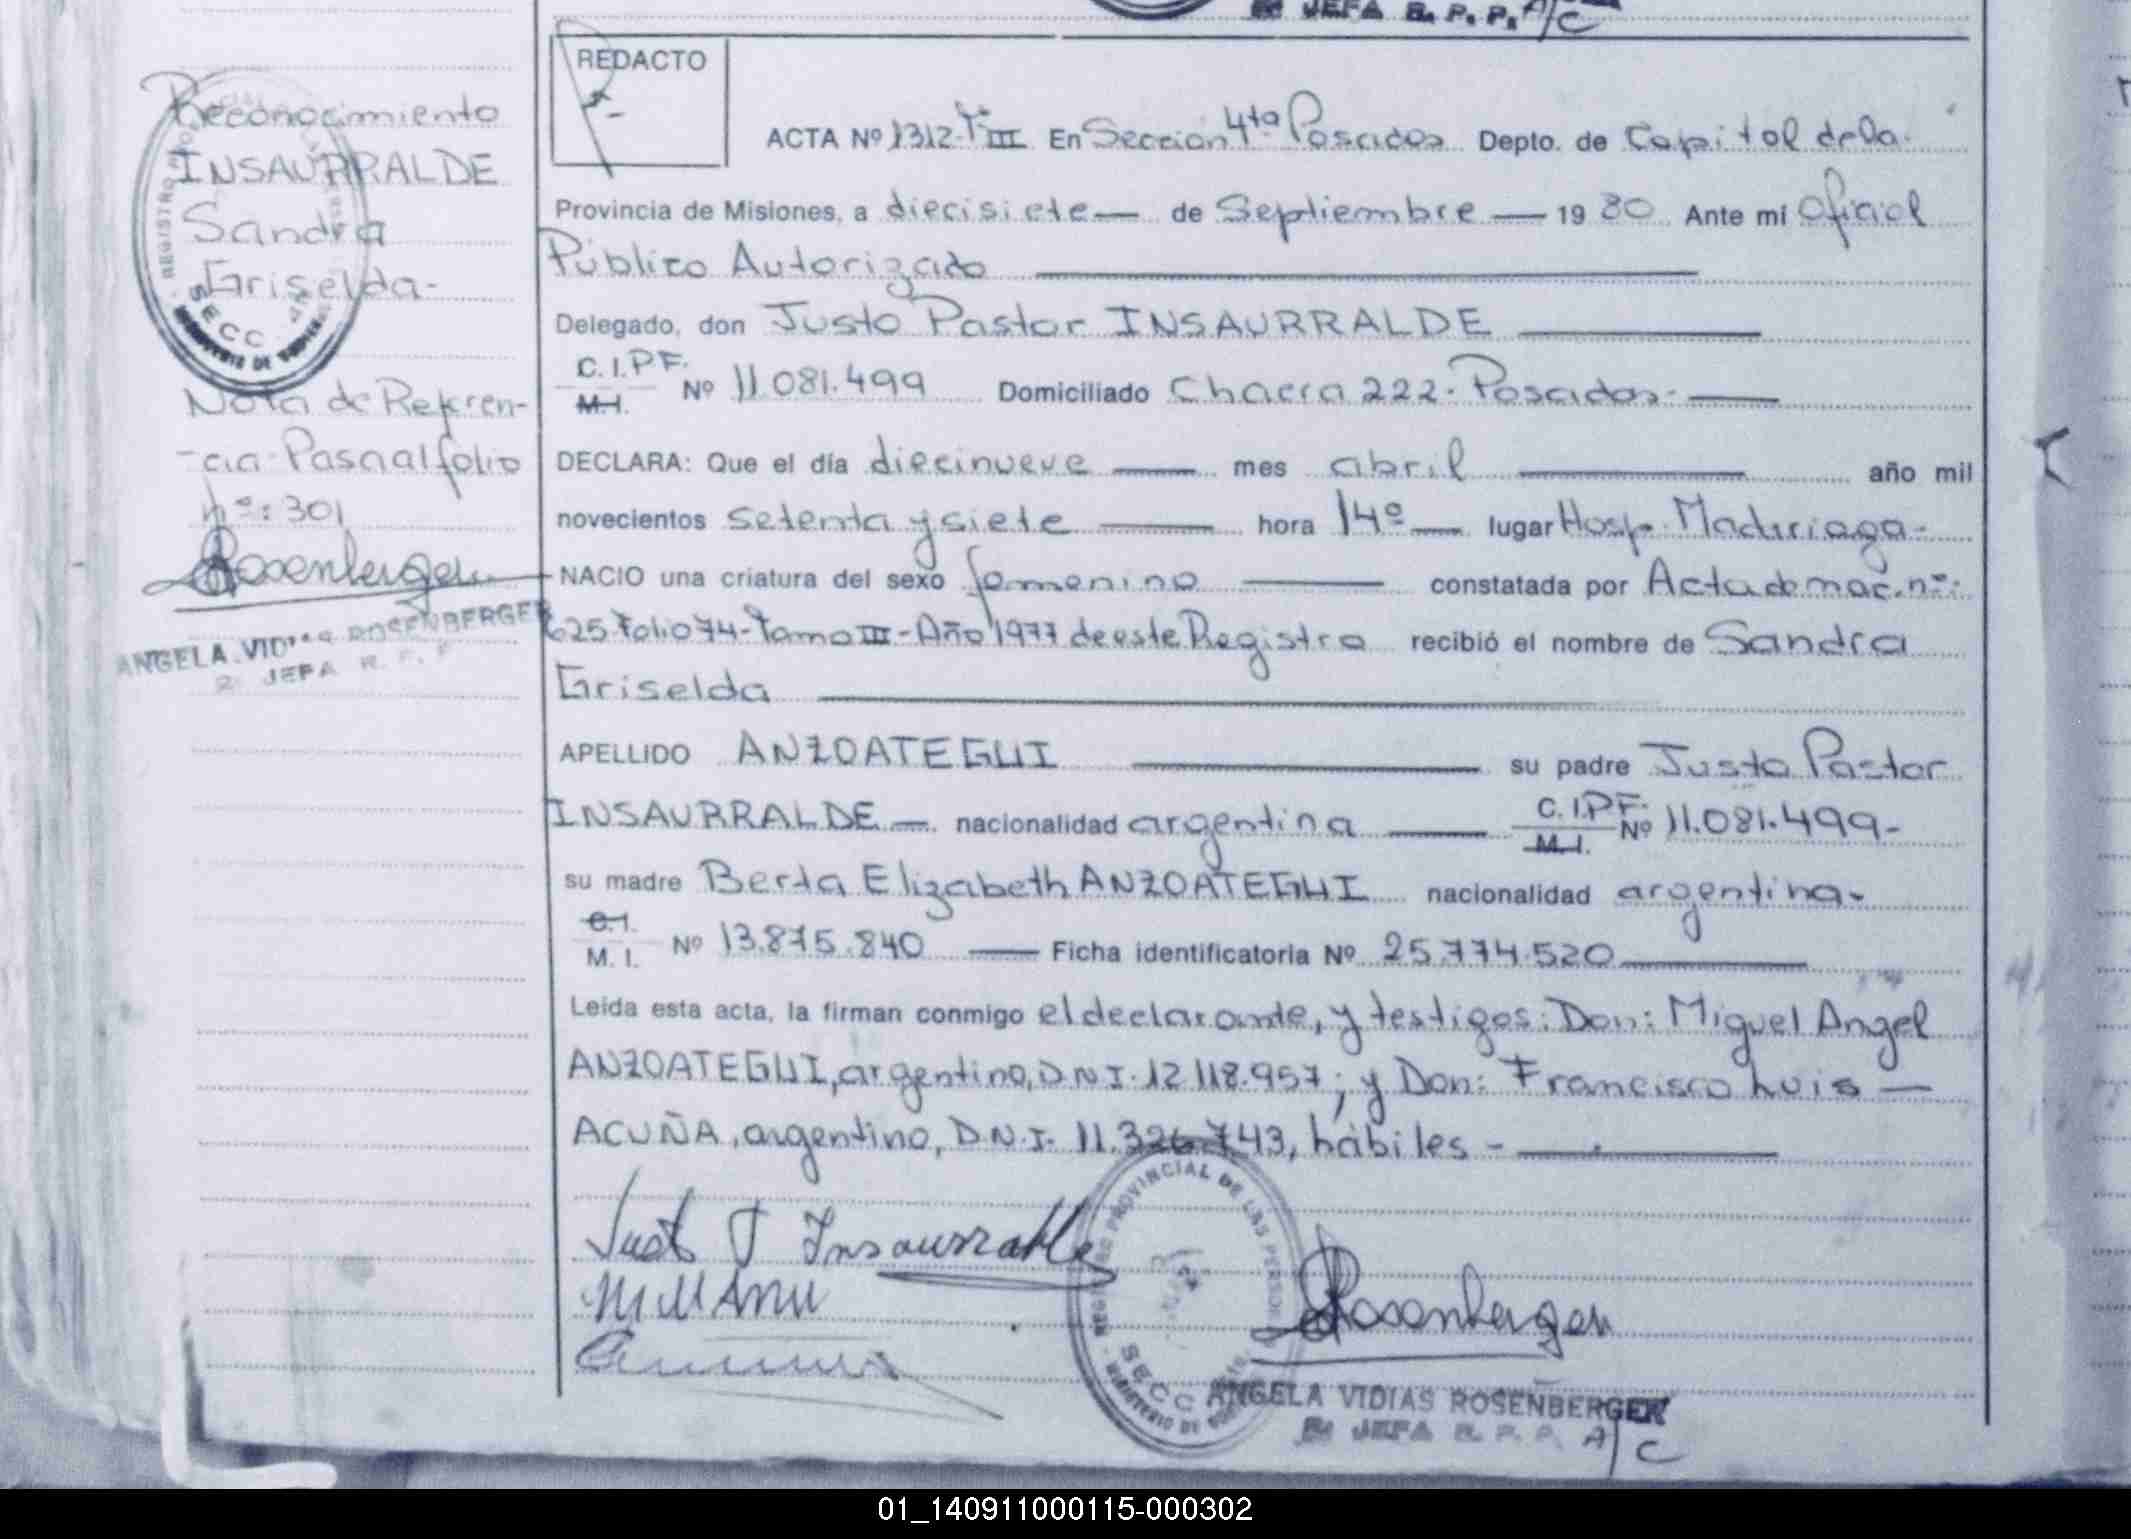 JEFA R. P. P. A/C
REDACTO
ACTA Nº 1312-Tº III En Sección 4ta Posadas Depto. de Capital de la
Provincia de Misiones, a diecisiete de Septiembre 1980 Ante mí Oficial
Público Autorizado
Delegado, don Justo Pastor INSAURRALDE
C.I.P.F.
M.I. Nº 11.081.499 Domiciliado Chacra 222- Posadas-
DECLARA: Que el día diecinueve mes abril año mil
novecientos setenta y siete hora 14º lugar Hosp. Madariaga-
NACIO una criatura del sexo femenino constatada por Acta de nac. nº:
625-Folio 74-Tomo III-Año 1977 de este Registro recibió el nombre de Sandra
Griselda
APELLIDO ANZOATEGUI su padre Justo Pastor
INSAURRALDE nacionalidad argentina C.I.P.F.
M.I. Nº 11.081.499-
su madre Berta Elizabeth ANZOATEGUI nacionalidad argentina-
C.I.
M. I. Nº 13.875.840 Ficha identificatoria Nº 25.774.520
Leida esta acta, la firman conmigo el declarante, y testigos: Don: Miguel Angel
ANZOATEGUI, argentino, D.N.I. 12.118.957; y Don: Francisco Luis
ACUÑA, argentino, D.N.I. 11.326.743, hábiles -
Just P Insaurralde
Rosenberger
REGISTRO PROVINCIAL DE LAS PERSONAS
SECC
MINISTERIO DE GOBIERNO
ANGELA VIDIAS ROSENBERGER
JEFA R. P. P. A/C
Reconocimiento
INSAURRALDE
Sandra
Griselda-
REGISTRO
SECC
MINISTERIO DE GOBIERNO
Nota de Referen-
-cia Pasa al folio
nº: 301
Rosenberger
ANGELA VIDIAS ROSENBERGER
JEFA R. P. P.
01_140911000115-000302